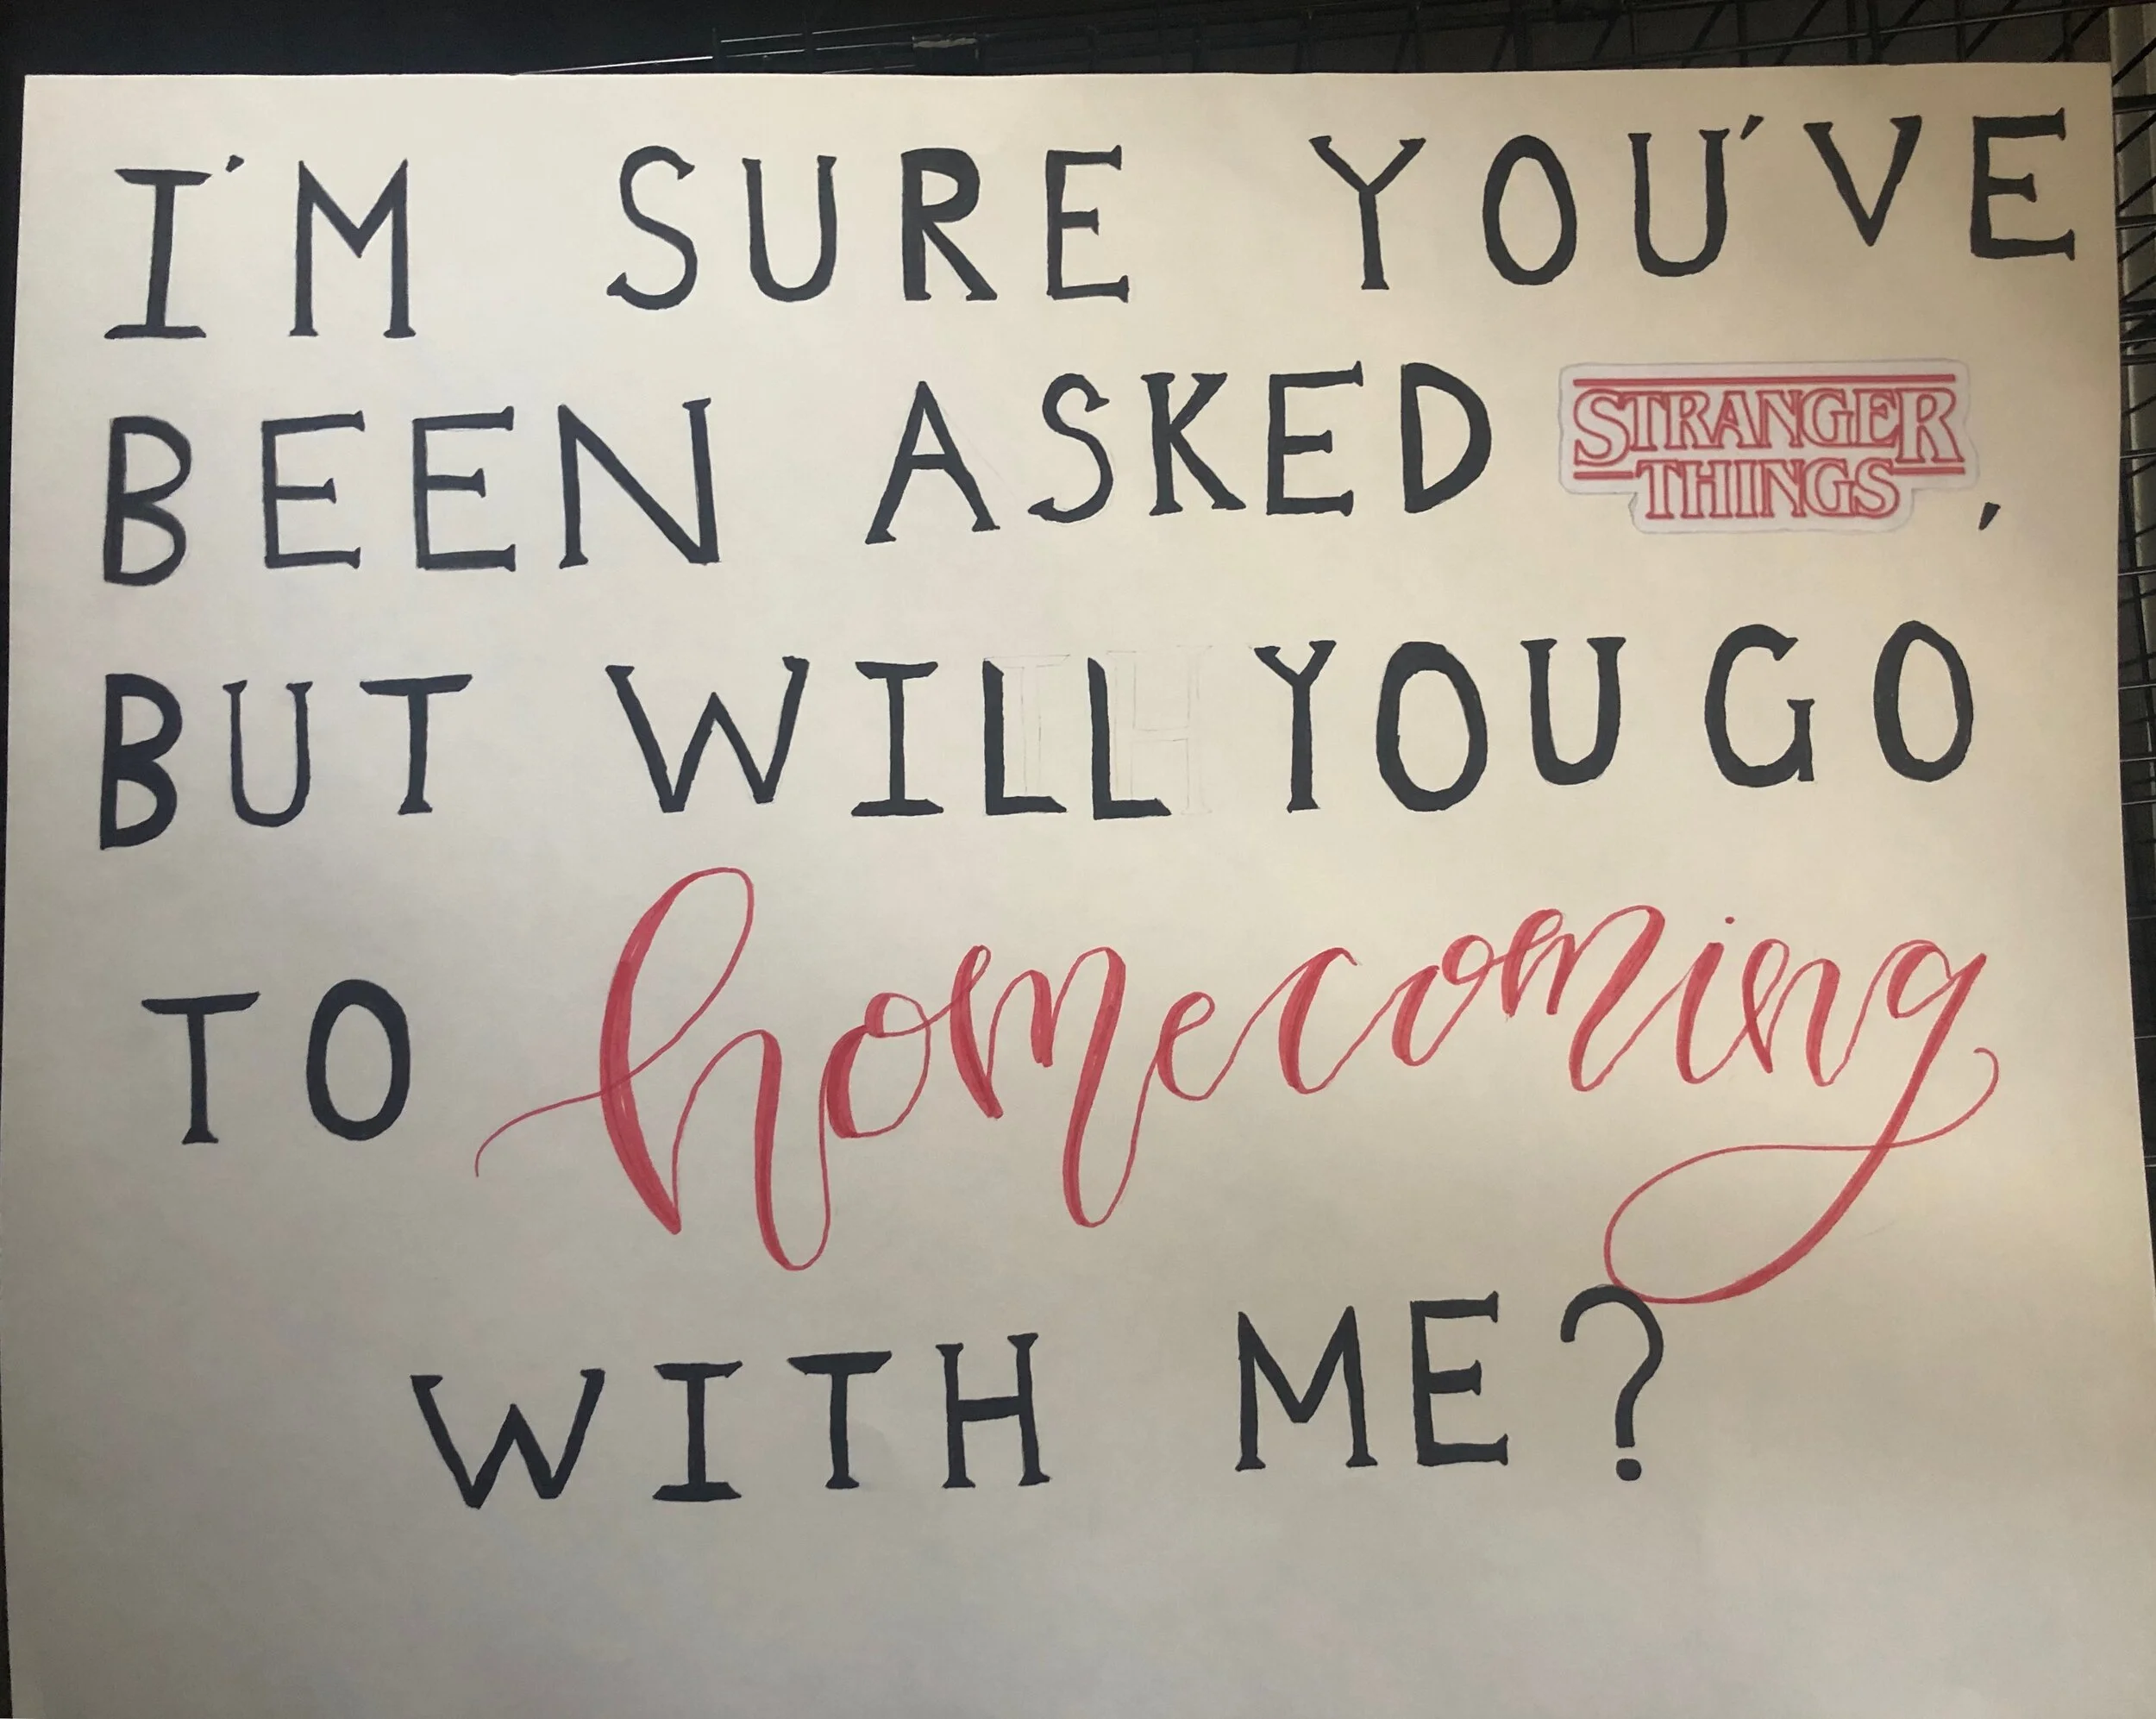 I'M SURE YOU'VE
BEEN ASKED STRANGER THINGS,
BUT WILL YOU GO
TO homecoming
WITH ME?